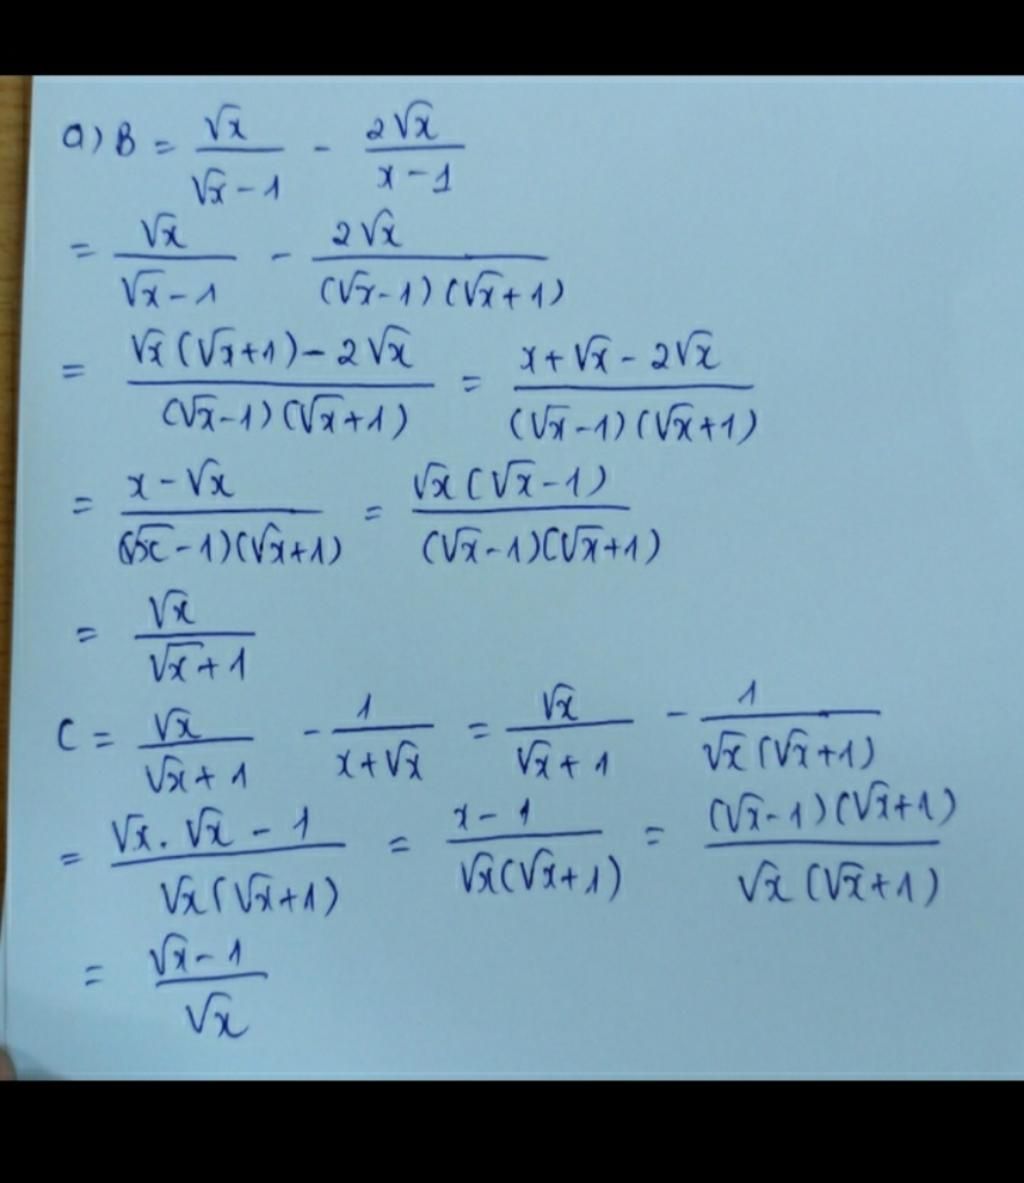 a) B = √x / (√x - 1) - 2√x / (x - 1)
= √x / (√x - 1) - 2√x / ((√x - 1)(√x + 1))
= (√x(√x + 1) - 2√x) / ((√x - 1)(√x + 1)) = (x + √x - 2√x) / ((√x - 1)(√x + 1))
= (x - √x) / ((√x - 1)(√x + 1)) = √x(√x - 1) / ((√x - 1)(√x + 1))
= √x / (√x + 1)
C = √x / (√x + 1) - 1 / (x + √x) = √x / (√x + 1) - 1 / (√x(√x + 1))
= (√x . √x - 1) / (√x(√x + 1)) = (x - 1) / (√x(√x + 1)) = (√x - 1)(√x + 1) / (√x(√x + 1))
= (√x - 1) / √x